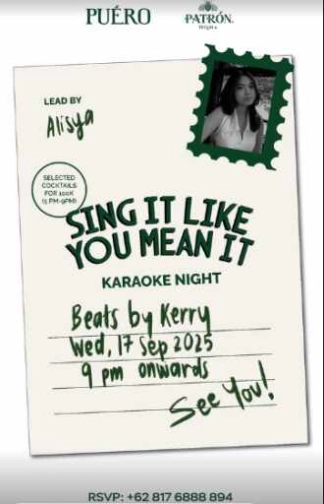 PUÉRO
PATRÓN.
LEAD BY
Alisya
SELECTED
COCKTAILS
FOR 100K
(5 PM-9PM)
SING IT LIKE
YOU MEAN IT
KARAOKE NIGHT
Beats by Kerry
Wed, 17 Sep 2025
9 pm onwards
See You!
RSVP: +62 817 6888 894